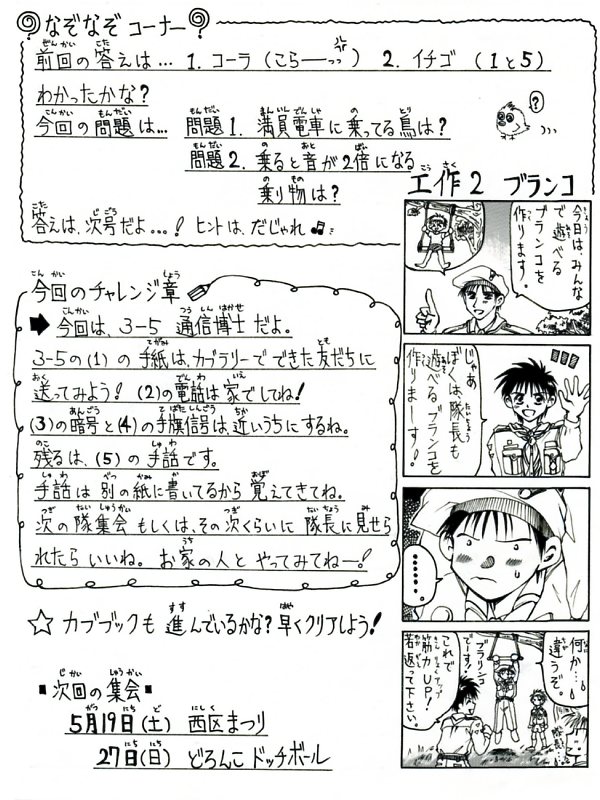 なぞなぞ コーナー?
前回の答えは… 1. コーラ (こらーっっ) 2. イチゴ (1と5)
わかったかな?
今回の問題は… 問題1. 満員電車に乗ってる鳥は?
問題2. 乗ると音が2倍になる
乗り物は?
答えは、次号だよ…! ヒントは、だじゃれ♫
?
今回のチャレンジ章
➡ 今回は、3-5 通信博士だよ。
3-5の(1)の手紙は、カブラリーでできた友だちに
送ってみよう! (2)の電話は家でしてね!
(3)の暗号と(4)の手旗信号は、近いうちにするね。
残るは、(5)の手話です。
手話は別の紙に書いてるから覚えてきてね。
次の隊集会もしくは、その次くらいに隊長に見せら
れたらいいね。お家の人とやってみてねー!
☆ カブブックも進んでいるかな?早くクリアしよう!
■次回の集会■
5月19日(土) 西区まつり
27日(日) どろんこドッチボール
工作2 ブランコ
今日は、みんな
で遊べる
ブランコを
作ります。
じゃあ
ぼくは、隊長も
遊べるブランコを
作りまーす!
………
何か…
違うぞ。
ブランコ
でーす!
これで
筋力UP!
若返って下さい。